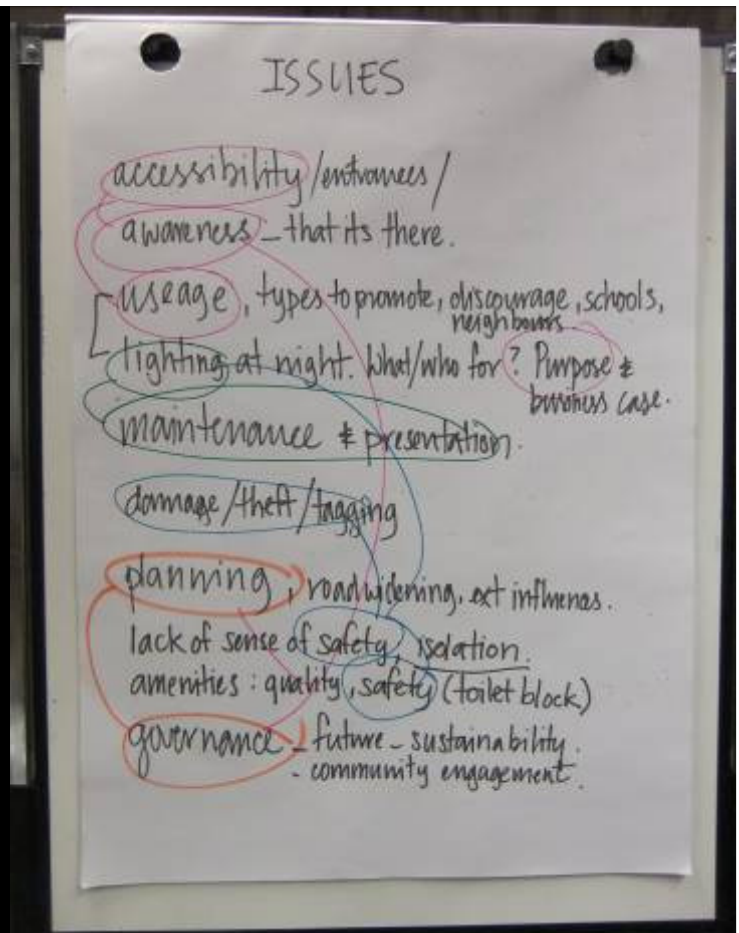 ISSUES
accessibility /entrances /
awareness - that its there.
useage, types to promote, discourage, schools,
neighbours
lighting at night. What/who for? Purpose &
business case.
maintenance & presentation.
damage/theft/tagging
planning, road widening, ext influences.
lack of sense of safety, isolation.
amenities: quality, safety (toilet block)
governance - future - sustainability.
- community engagement.